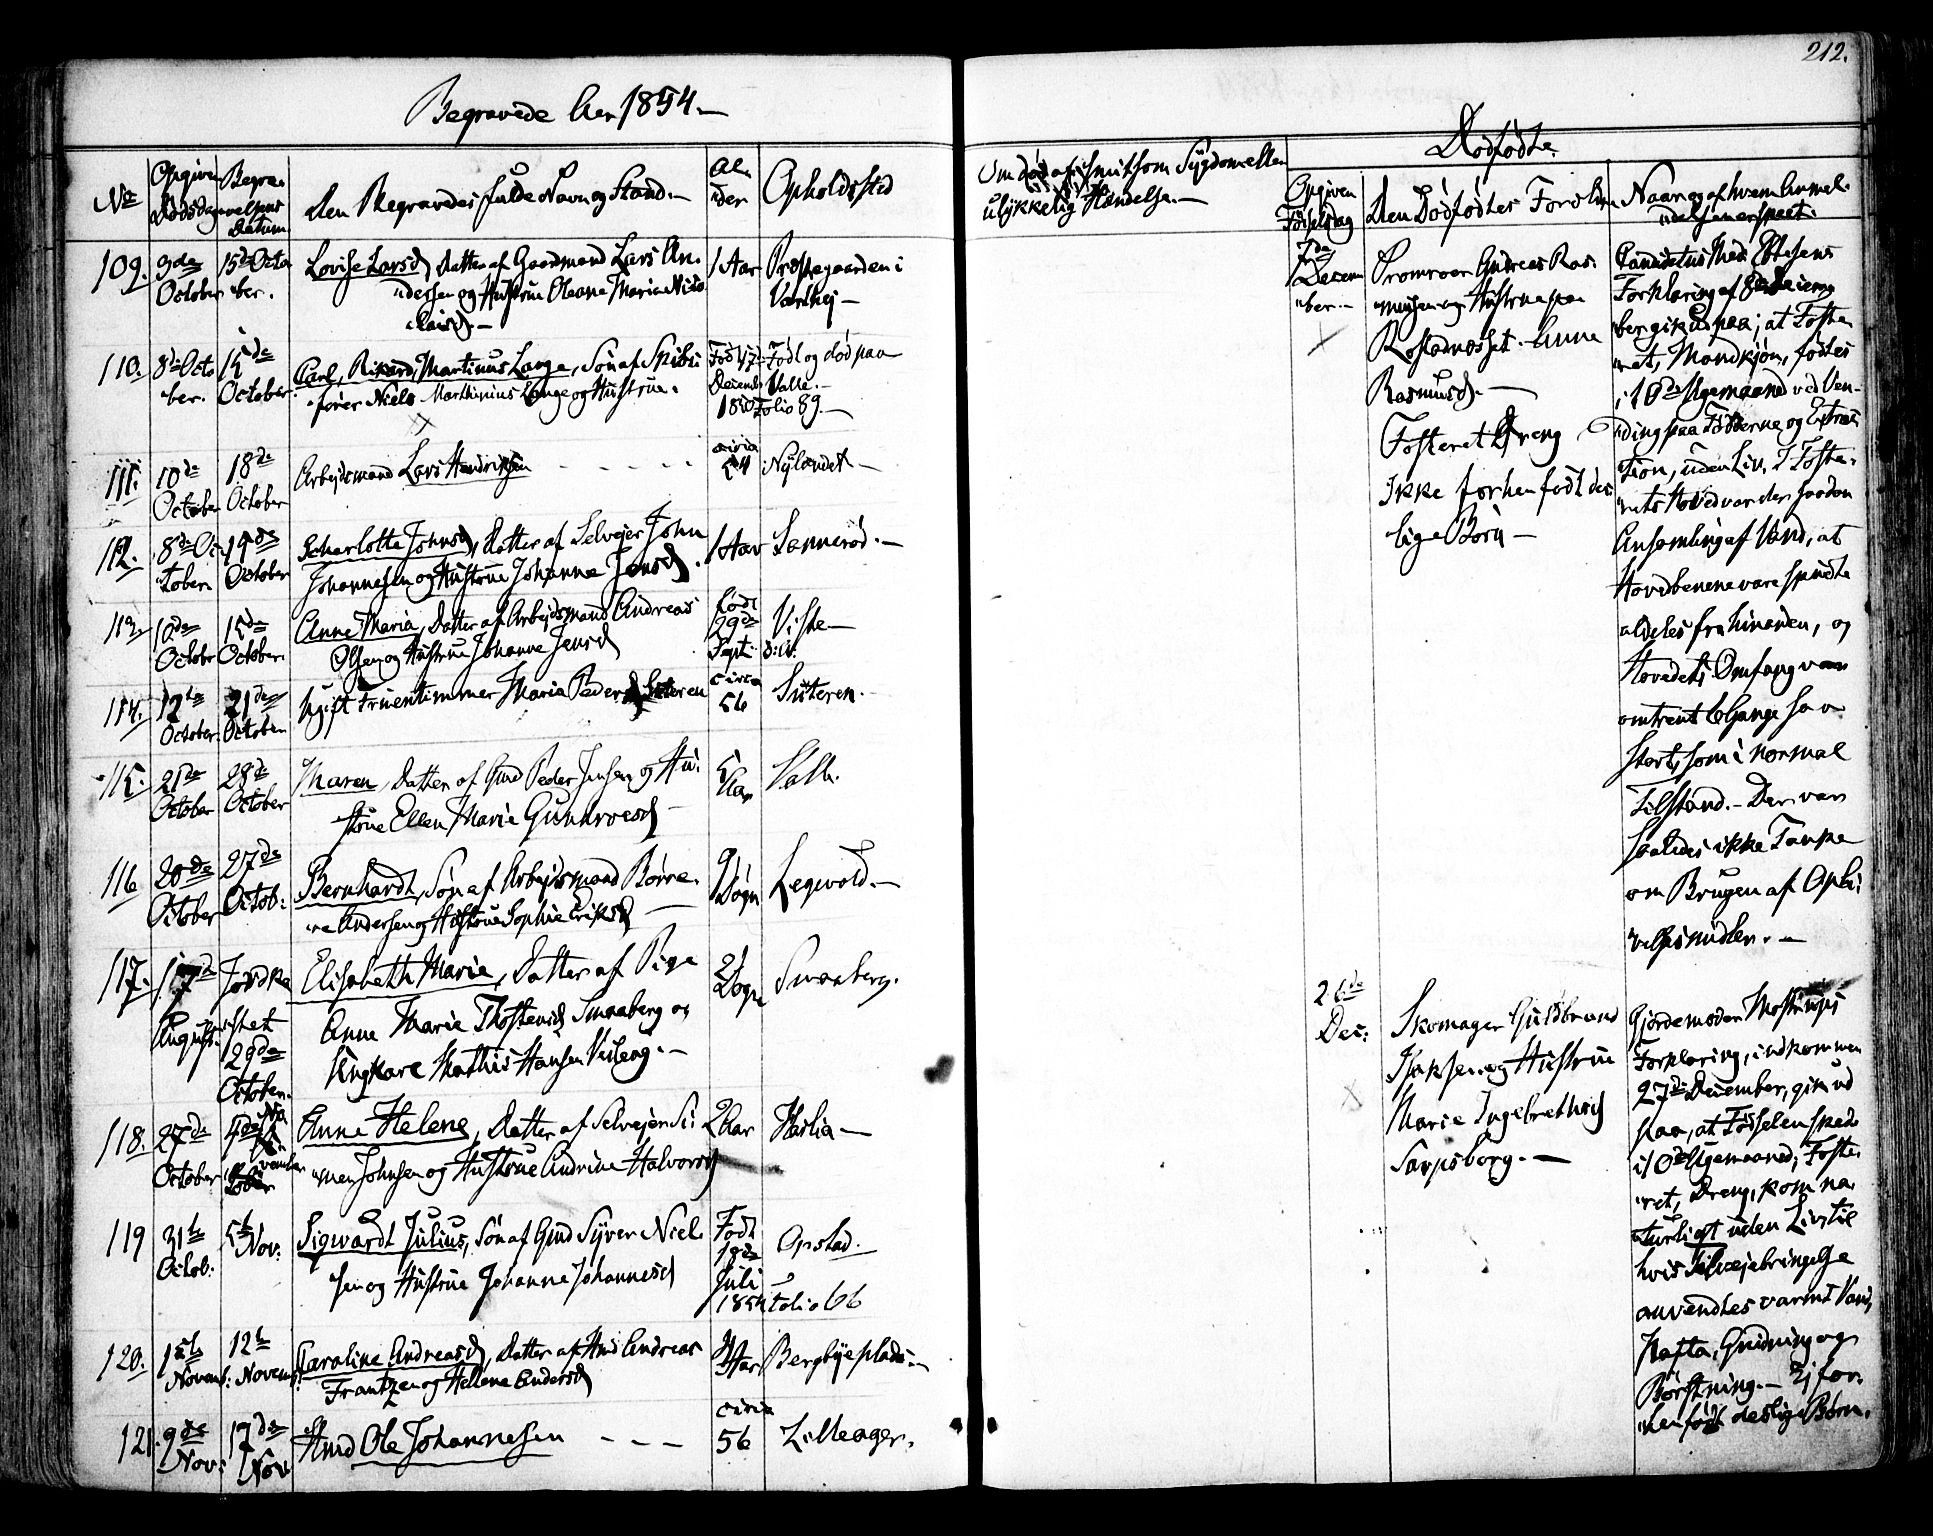 212.
Begravede Aar 1854.—
No
Opgiven
Dødsdag
Begra-
velsens
Datum
Den Begravedes fulde Navn og Stand.—
Al-
der
Opholdssted
109.
9de
October
15de Octo
ber.
Lovise Larsd, Datter af Gaardmand Lars An-
dersen og Hustrue Oleane Marie Nico
laisd.—
1 Aar
Præstegaarden i
Varteig—
110.
8de Octo
ber.
15de
October.
Carl, Rikard, Martinus Lange, Søn af Skibs
fører Niels Marthinius Lange og Hustrue.
Født 17de
Decemb
1850
Født og død paa
Valle.—
Folio 89.—
111.
10de
October
18de
October
Arbejdsmand Lars Hendriksen
circa
54
Nylandet—
112.
8de Oc-
tober.
19de
October
Scharlotte Johnsd, Datter af Selvejer John
Johannesen og Hustrue Johanne Jensd.
1 Aar
Sannerød.—
113.
10de
Octobr
15de
October.
Anne Maria, Datter af Arbejdsmand Andreas
Olsen og Hustrue Johanne Jensd
født
29de
Sept.
Viste—
114.
12te
October.
21de
October
Ugift Fruentimmer Maria Pedersd Suteren
circa
56
Suteren.
115.
21de
October
28de
October
Maren, Datter af Gmd Peder Jensen og Hu-
strue Ellen Marie Gundroesd
5
Aar
Valle.
116
20de
October
27de
Octob:
Bernhardt, Søn af Arbejdsmand Børre
Andersen og Hustrue Sophie Eriksd
9
Døgn
Legvold.—
117.
17de
August.
Jordka
stet
29de
October.
Elisabeth Marie, Datter af Pige
Anne Marie Thostensd Smaaberg og
Ungkarl Mathis Hansen
2
Døgn
Smaaberg.
118.
27de
October
4de No
vember
Anne Helene, Datter af Selvejer Si-
men Johnsen og Hustrue Andrine Halvorsd
2 Aar
Harlia—
119
31te
Octob:
5te
Nov:
Sigwardt Julius, Søn af Gmd Syver Niel-
sen og Hustrue Johanne Johannesd
Født
18de
Juli
1854
Opstad.
Folio 66
120.
Novemb:
12te
Novemb:
Caroline Andreasd, Datter af Hmd Andreas
Frantzen og Hellene Andersd
Aar
Bergbyeplads.—
121.
9de
Nov:
17de
Nov
Hmd Ole Johannesen
circa
56
Lilleager.
Om død af smitsom Sygdom eller
ulykkelig Hændelse.—
Dødfødte.
Opgiven
Fødselsdag
Den Dødfødtes Forældre
Naar og af hvem Anmel-
delsen er skeet.
7de
Decem
ber.—
Promroer Andreas Ras-
mussen og Hustrue paa
Anne
Rasmusd.—
Fosteret Dreng
Ikke forhen født des
lige Børn—
Candidatus Med.
Forklaring af 8de Decem
ber gik ud paa; at Foste
ret, Mandkjøn, fødtes
i 10de Ugemaaned ved Ven-
ding paa Fødderne og Extrac
tion, uden Liv. I Foste-
rets Hoved var der saadan
Ansamling af Vand, at
Hovedbenene vare spredte
aldeles fra hinanden, og
Hovedets Omfang var
omtrent 6 Gange saa
stort, som i normal
Tilstand.— Der var
saaledes ikke Tanke
om Brugen af Opli
velsesmidler.—
26de
Dec:
Skomager Guldbrand
Isaksen og Hustrue
Marie Ingebrethsd
Sarpsborg.—
Gjordemoder
Forklaring, indkommen
27de December, gik ud
paa, at Fødselen skede
i 10de Ugemaaned; Foste-
ret, Dreng, kom na-
turligt uden Liv til
hvis Tilvejebringelse
anvendtes varmt Vand,
Nafta, Gnidning og
Børstning.— Ej for-
hen født deslige Børn.